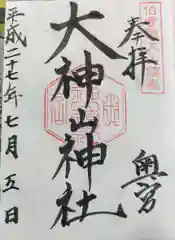 奉拝
大神山神社
奥宮
平成二十七年七月五日